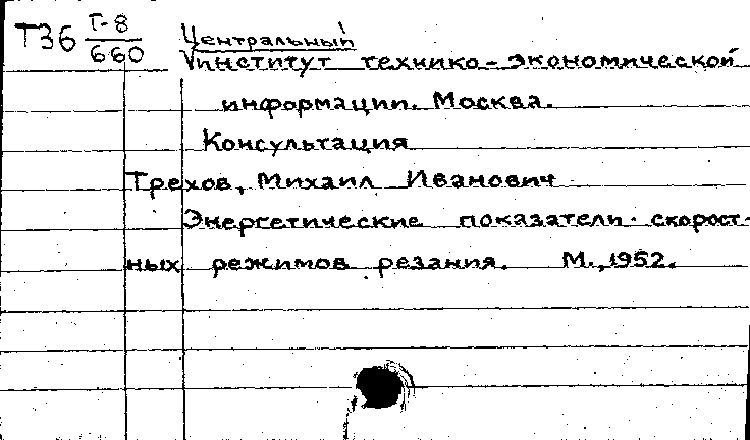 Т36 Т-8
660
Центральный
институт технико-экономической
информации. Москва.
Консультация
Трехов, Михаил Иванович
Энергетические показатели скорост-
ных режимов резания. М., 1952.